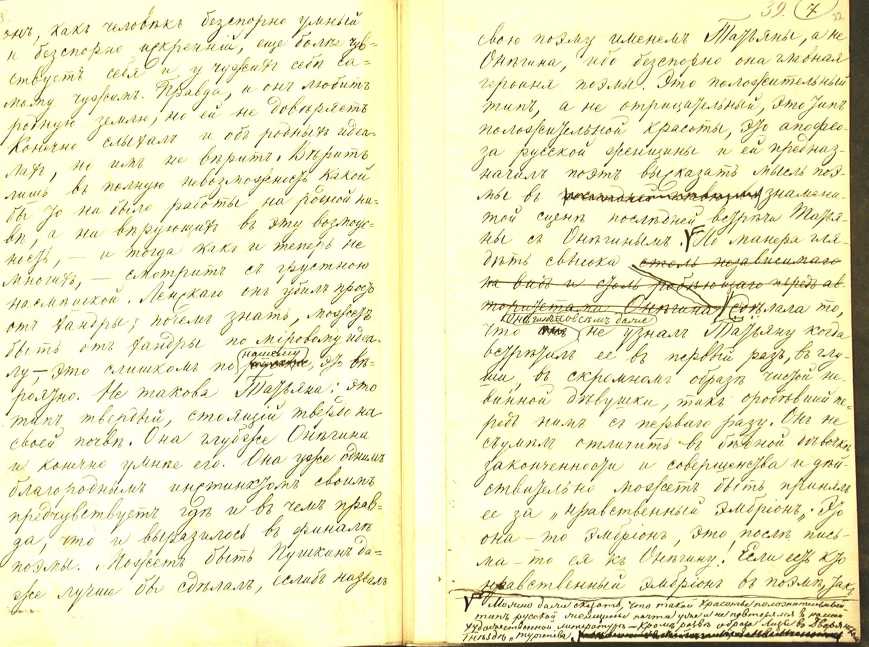 онъ, какъ человѣкъ безспорно умный
и безспорно искренній, еще болѣе чув-
ствуетъ себя и у чужихъ себѣ са-
мому чужимъ. Правда, и онъ любитъ
родную землю, но ей не довѣряетъ.
Конечно слыхалъ и объ родныхъ идеа-
лахъ, но имъ не вѣритъ. Вѣритъ
лишь въ полную невозможность какой
бы то ни было работы на родной ни-
вѣ, а на вѣрующихъ въ эту возмож-
ность, — и тогда какъ и теперь не
многихъ, — смотритъ съ грустною
насмѣшкой. Ленскаго онъ убилъ просто
отъ хандры; почемъ знать, можетъ
быть отъ хандры по міровому идеа-
лу, — это слишкомъ по
нашему
, это вѣ-
роятно. Не такова Татьяна: это
типъ твердый, стоящій твердо на
своей почвѣ. Она глубже Онѣгина
и конечно умнѣе его. Она уже однимъ
благороднымъ инстинктомъ своимъ
предчувствуетъ гдѣ и въ чемъ прав-
да, что и выразилось въ финалѣ
поэмы. Можетъ быть Пушкинъ да-
же лучше бы сдѣлалъ, еслибъ назвалъ
39. 7
свою поэму именемъ Татьяны, а не
Онѣгина, ибо безспорно она главная
героиня поэмы. Это положительный
типъ, а не отрицательный, это типъ
положительной красоты, это апофео-
за русской женщины и ей предназ-
началъ поэтъ высказать мысль поэ-
мы въ знамени-
той сценѣ послѣдней встрѣчи Татья-
ны съ Онѣгинымъ. Но манера гля-
дѣть свысока столь независимаго
на видъ и столь робѣющаго передъ ав-
торитетами Онѣгина сдѣлала то,
что Онѣгинъ совсѣмъ даже не узналъ Татьяну когда
встрѣтилъ ее въ первый разъ, въ глу-
ши, въ скромномъ образѣ чистой не-
винной дѣвушки, такъ оробѣвшей пе-
редъ нимъ съ перваго разу. Онъ не
съумѣлъ отличить въ бѣдной дѣвочкѣ
законченности и совершенства и дѣй-
ствительно можетъ быть принялъ
ее за „нравственный эмбріонъ„. Это
она-то эмбріонъ, это послѣ пись-
ма-то ея къ Онѣгину. Если есть кто
нравственный эмбріонъ въ поэмѣ, такъ
Можно даже сказать, что такой красоты положительный
типъ русской женщины почти уже и не повторялся въ нашей
художественной литературѣ — кромѣ развѣ образа Лизы въ Дворянскомъ
Гнѣздѣ„ Тургенева